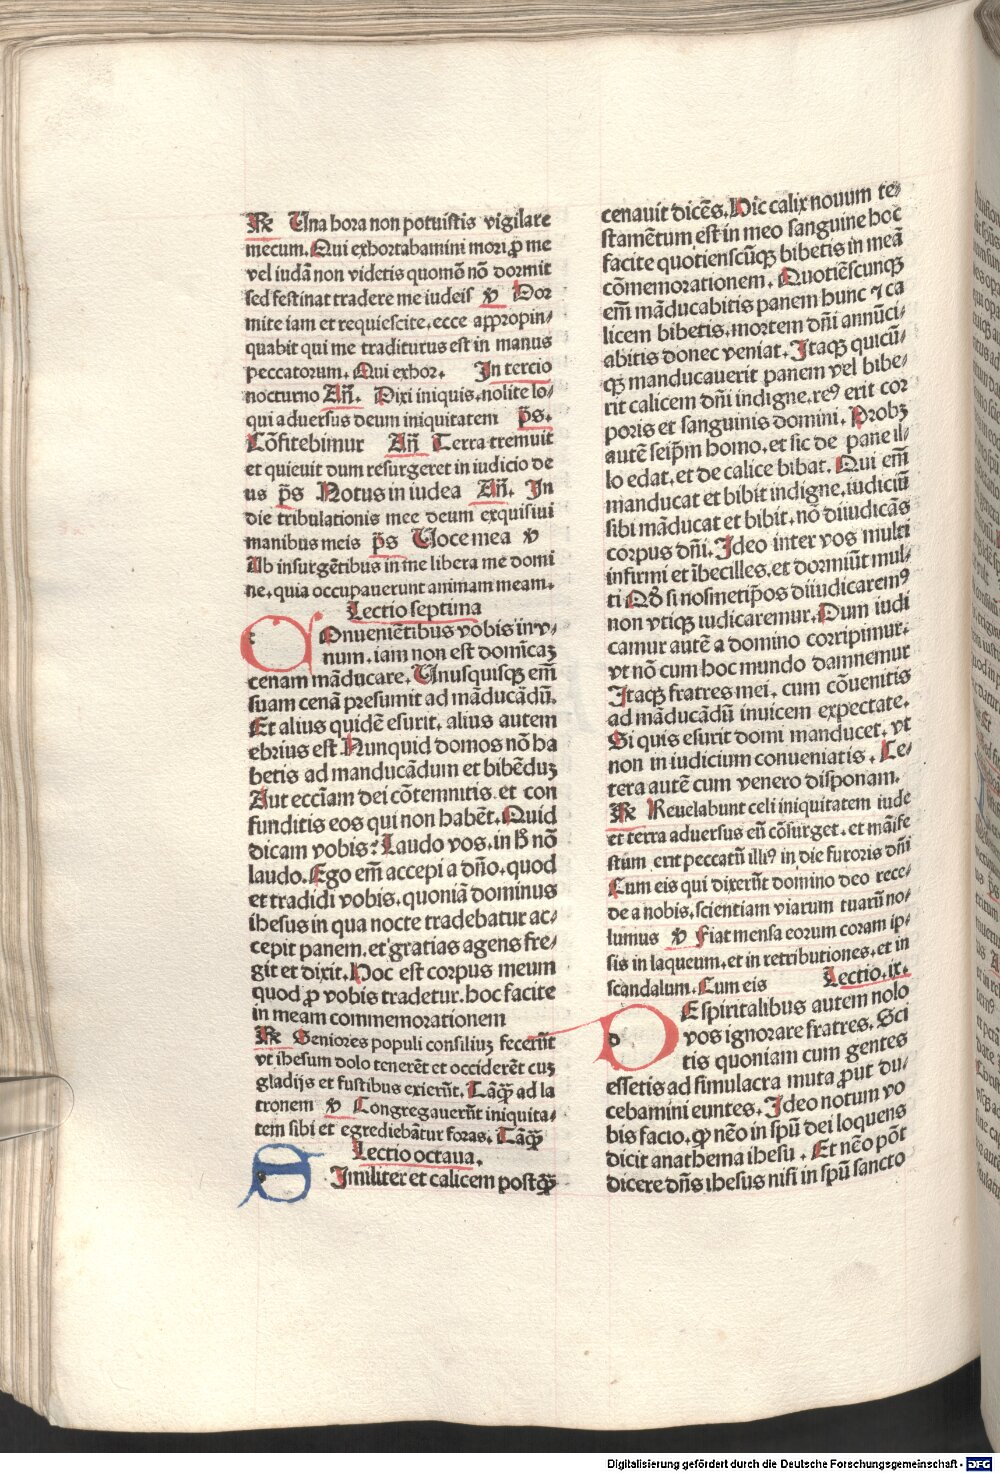 R̃ Una hora non potuistis vigilare
mecum. Qui exhortabamini mori ꝓ me
vel iudã non videtis quomõ nõ dormit
sed festinat tradere me iudeis ℣ Dor
mite iam et requiescite. ecce appropin⸗
quabit qui me traditurus est in manus
peccatorum. Qui exhor. In tercio
nocturno Añ. Dixi iniquis. nolite lo⸗
qui aduersus deum iniquitatem p̃s.
Cõfitebimur Añ Terra tremuit
et quieuit dum resurgeret in iudicio de
us p̃s Notus in iudea Añ. In
die tribulationis mee deum exquisiui
manibus meis p̃s Uoce mea ℣
Ab insurgẽtibus in me libera me domi
ne. quia occupauerunt animam meam.
Lectio septima
COnueniẽtibus vobis in v⸗
num. iam non est domĩcaꝫ
cenam mãducare. Unusquisqꝫ em̃
suam cenã presumit ad mãducãdũ.
Et alius quidẽ esurit. alius autem
ebrius est. Nunquid domos nõ ha
betis ad manducãdum et bibẽduꝫ
Aut eccl̃iam dei cõtemnitis. et con
funditis eos qui non habẽt. Quid
dicam vobis? Laudo vos. in h̃ nõ
laudo. Ego em̃ accepi a dño. quod
et tradidi vobis. quoniã dominus
ihesus in qua nocte tradebatur ac⸗
cepit panem. et gratias agens fre⸗
git et dixit. Hoc est corpus meum
quod ꝓ vobis tradetur. hoc facite
in meam commemorationem
R̃ Seniores populi consiliuꝫ fecerũt
vt ihesum dolo tenerẽt et occiderẽt cuꝫ
gladijs et fustibus exierũt. Tãqꝫ ad la
tronem ℣ Congregauerũt iniquita⸗
tem sibi et egrediebãtur foras. Tãqꝫ
Lectio octaua.
SImiliter et calicem postqꝫ
cenauit dicẽs. Hic calix nouum te⸗
stamẽtum est in meo sanguine hoc
facite quotienscũqꝫ bibetis in meã
cõmemorationem. Quotiẽscunqꝫ
em̃ mãducabitis panem hunc ⁊ ca
licem bibetis. mortem dñi annũci⸗
abitis donec veniat. Itaqꝫ quicũ⸗
qꝫ manducauerit panem vel bibe⸗
rit calicem dñi indigne. reꝰ erit cor
poris et sanguinis domini. Probꝫ
autẽ seip̃m homo. et sic de pane il⸗
lo edat. et de calice bibat. Qui em̃
manducat et bibit indigne. iudiciũ
sibi mãducat et bibit. nõ diiudicãs
corpus dñi. Ideo inter vos multi
infirmi et ĩbecilles. et dormiũt mul⸗
ti Qđ si nosmetip̃os diiudicaremꝰ
non vtiqꝫ iudicaremur. Dum iudi
camur autẽ a domino corripimur.
vt nõ cum hoc mundo damnemur
Itaqꝫ fratres mei. cum cõuenitis
ad mãducãdũ inuicem expectate.
Si quis esurit domi manducet. vt
non in iudicium conueniatis. Ce⸗
tera autẽ cum venero disponam.
R̃ Reuelabunt celi iniquitatem iude
et terra aduersus eũ cõsurget. et mãife
stũm erit peccatũ illiꝰ in die furoris dñi
Cum eis qui dixerũt domino deo rece⸗
de a nobis. scientiam viarum tuarũ no⸗
lumus ℣ Fiat mensa eorum coram ip⸗
sis in laqueum. et in retributiones. et in
scandalum. Cum eis Lectio. ix.
DE spiritalibus autem nolo
vos ignorare fratres. Sci
tis quoniam cum gentes
essetis ad simulacra muta ꝓut du⸗
cebamini euntes. Ideo notum vo
bis facio. qꝫ nẽo in spũ dei loquens
dicit anathema ihesu. Et nẽo põt
dicere dñs ihesus nisi in spũ sancto
Digitalisierung gefördert durch die Deutsche Forschungsgemeinschaft - DFG